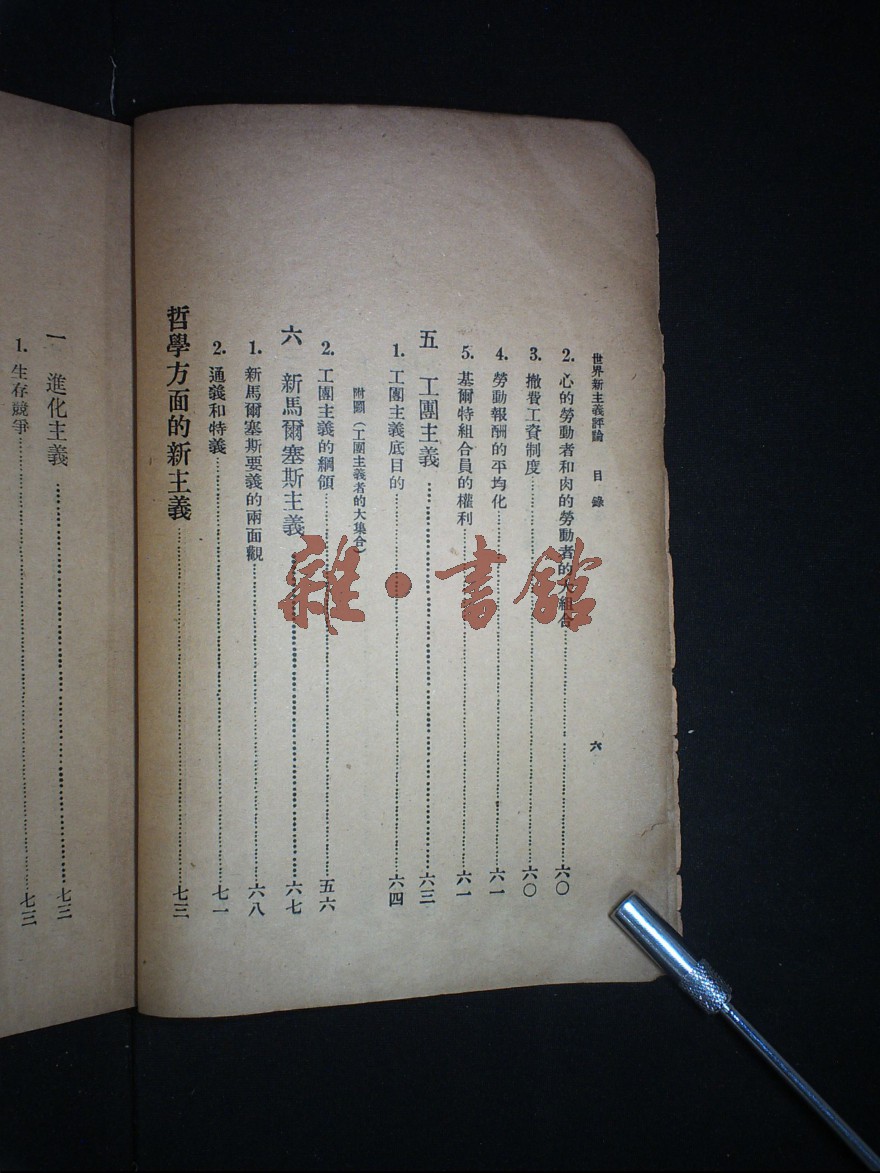 世界新主義評論 目錄 六
2. 心的勞動者和肉的勞動者的大組合……六〇
3. 撤費工資制度……六〇
4. 勞動報酬的平均化……六一
5. 基爾特組合員的權利……六一
五 工團主義……六三
1. 工團主義底目的……六四
附顯（工團主義者的大集合）
2. 工團主義的綱領……五六
六 新馬爾塞斯主義……六七
1. 新馬爾塞斯要義的兩面觀……六八
2. 通義和特義……七一
哲學方面的新主義……七三
一 進化主義……七三
1. 生存競爭……七三
雜·書館